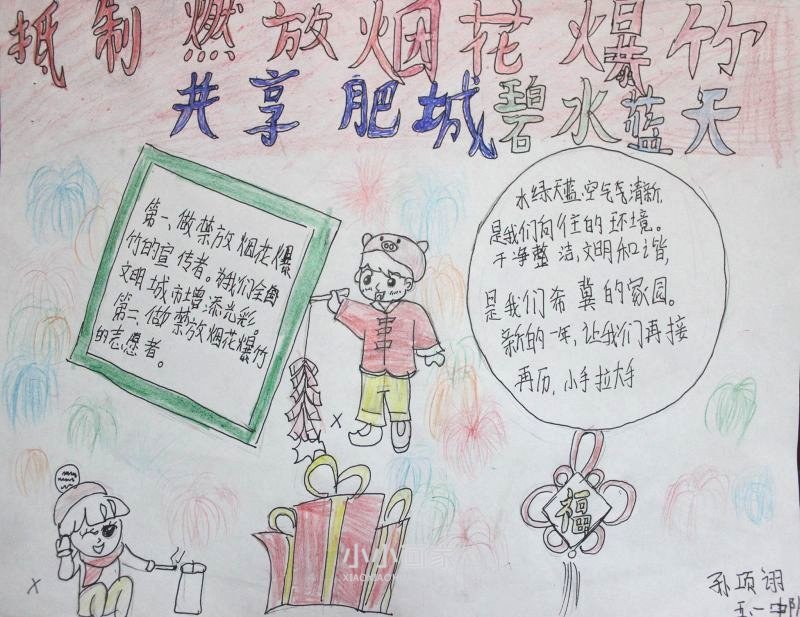 抵制燃放烟花爆竹
共享肥城碧水蓝天
第一、做禁放烟花爆
竹的宣传者。为我们全国
文明城市增添光彩。
第二、做禁放烟花爆竹
的志愿者。
水绿天蓝、空气清新,
是我们向往的环境。
干净整洁,文明和谐,
是我们希冀的家园。
新的一年,让我们再接
再历,小手拉大手
福
X
X
小小画家
XIAOXIAOHUA
孙项诩
五一中队